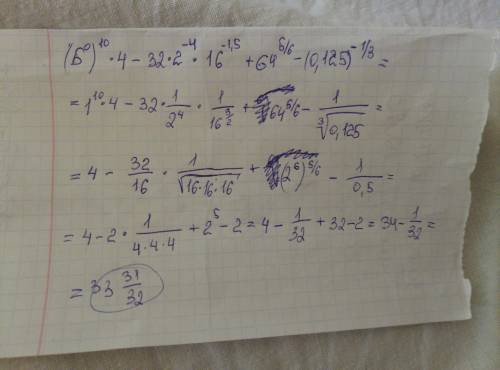 (Б⁰)¹⁰·4 − 32·2⁻⁴·16⁻¹,⁵ + 64^5/6 − (0,125)^−1/3 =
= 1¹⁰·4 − 32·1/2⁴·1/16^3/2 + 64^5/6 − 1/∛0,125 =
= 4 − 32/16·1/√16·16·16 + (2⁶)^5/6 − 1/0,5 =
= 4 − 2·1/4·4·4 + 2⁵ − 2 = 4 − 1/32 + 32 − 2 = 34 − 1/32 =
= 33 31/32